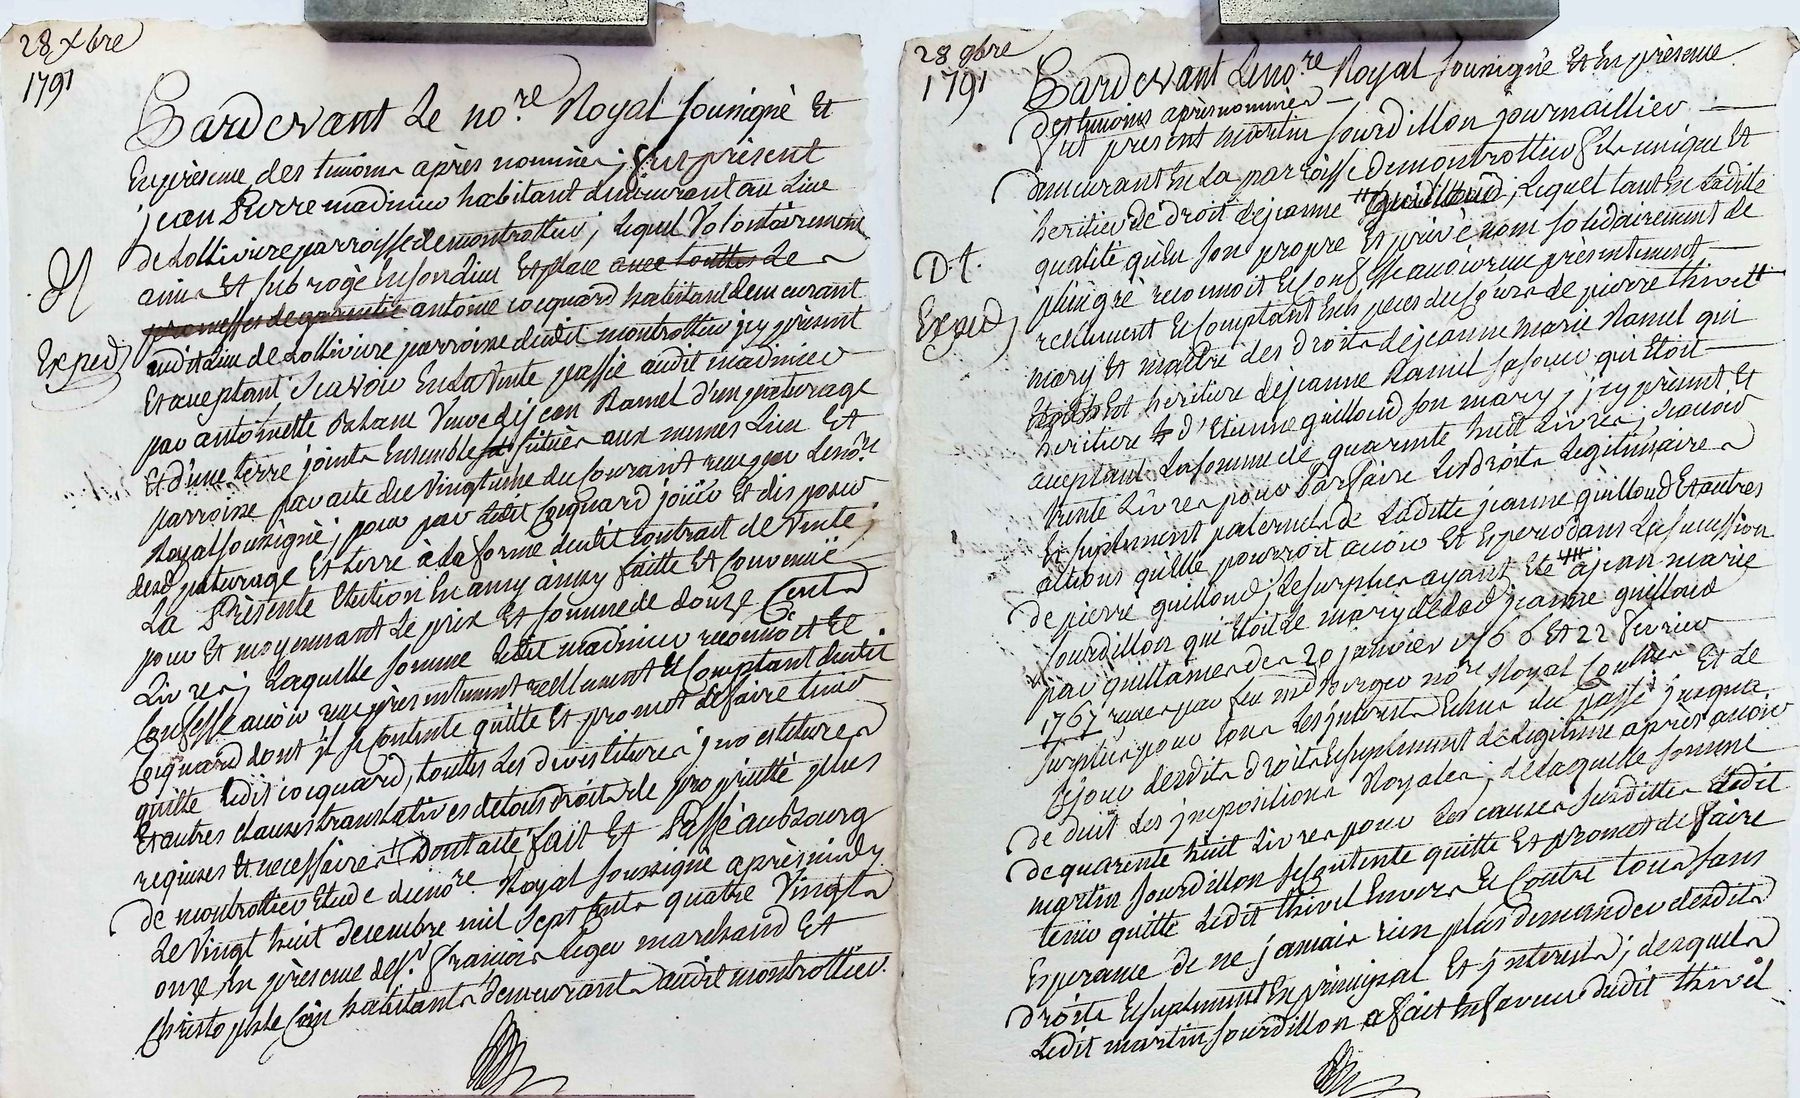 28 xbre
1791
Pardevant Le no.re Royal soussigné Et
En présence des temoins après nommés, fut présent
jean Pierre madinier habitant demeurant au Lieu
de Lollivière parroisse de montrottier, Lequel Volontairement
a mis Et subrogé En son Lieu Et place avec touttes Le
promesses de garantie antoine cocquard habitant demeurant
audit Lieu de Lollivière parroisse dudit montrottier jcy présent
Et acceptant scavoir En La Vente passée audit madinier
par antoinette Veuve de jean Ramel d'un paturage
Et d'une terre joints Ensemble situés aux memes Lieu Et
parroisse par acte du Vingt du Courant reçu par Leno.re
Royal soussigné, pour par Ledit Cocquard jouir Et disposer
desd paturage Et terre à La forme dudit Contrat de Vente,
La Présente Election En amy à amy faitte Et Convenuë
pour Et moyennant Le prix Et somme de douze Cents
Livres, Laquelle somme Ledit madinier reconnoit Et
Confesse avoir reçu présentement réellement Et Comptant dudit
Cocquard dont jl se Contente quitte Et promet de faire tenir
quitte Ledit cocquard, toutes Les divestitures jnvestitures
Et autres clauses translatives de tous droits de propriété plus
requises Et necessaires Dont acte fait Et Passé au Bourg
de montrottier Etude du no.re Royal soussigné après midy
Le Vingt huit decembre mil sept Cents quatre Vingts
onze En présence de s.r François Liger marchand Et
Christophe habitants demeurants audit montrottier.
Exped
28 9bre
1791
Pardevant Leno.re Royal soussigné Et En présence
des temoins après nommés
fut présent martin sourdillon journaillier
demeurant En La parroisse de montrottier fils unique Et
heritier de droit de jeanne guilloud, Lequel tant En Ladite
qualité qu'En son propre Et privé nom solidairement de
plein gré reconnoit Et Confesse avoir reçu présentement
réellement Et Comptant En Especes du Cours de pierre thivel
mary Et maitre des droits de jeanne marie Ramel qui
Est heritiere de jeanne Ramel sa soeur qui Etoit
heritiere d'Etienne guilloud son mary, jcy présent Et
acceptant La somme de quarente huit Livres, scavoir
trente Livres pour Parfaire Les droits Legitimaires
Et suplement paternels de Laditte jeanne guilloud Et autres
actions qu'elle pourroit avoir Et Esperer dans La succession
de pierre guilloud, Le surplus ayant Eté à jean marie
sourdillon qui Etoit Le mary de Lad jeanne guilloud
par quittances des 20 janvier 1766 Et 22 fevrier
1767 reçues par feu m.e Berger no.re Royal Et Le
surplus pour tous Les jnterets Echus du passé jusqua
Ce jour desdits droits Et suplement de Legitime après avoir
deduit Les jmpositions Royales, de Laquelle somme
de quarente huit Livres pour Les causes susdittes Ledit
martin sourdillon se Contente quitte Et promet de faire
tenir quitte Ledit thivel Envers Et Contre tous sans
Esperance de ne jamais rien plus demander desdits
droits Et suplement En principal Et jnterets, desquels
Ledit martin sourdillon a fait En faveur dudit thivel
D.t.
Exped